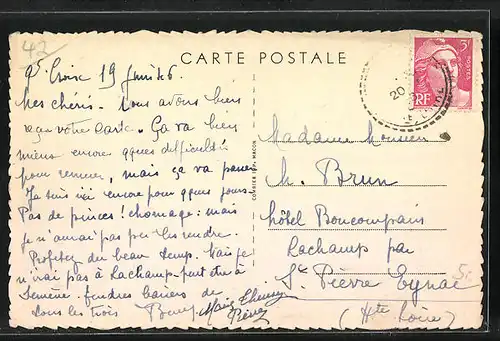 42
CARTE POSTALE
Croix 19 Juin 46
Mes chéris. Nous avons bien
reçu votre carte. Ça va bien
mieux encore qques difficultés
pour remuer, mais ça va passer
Je suis ici encore pour qques jours.
Pas de princes! chomage: mais
je n'aurai pas pu les rendre.
Profitez du beau temps.
n'irai pas à Lachamp
semaine. Tendres baisers de
tous les trois
COMBIER IMP. MACON
3F
POSTES
RF
20
Madame Monsieur
M. Brun
hôtel Boucompain
Lachamp par
St Pierre Eynac
(Hte Loire)
5.